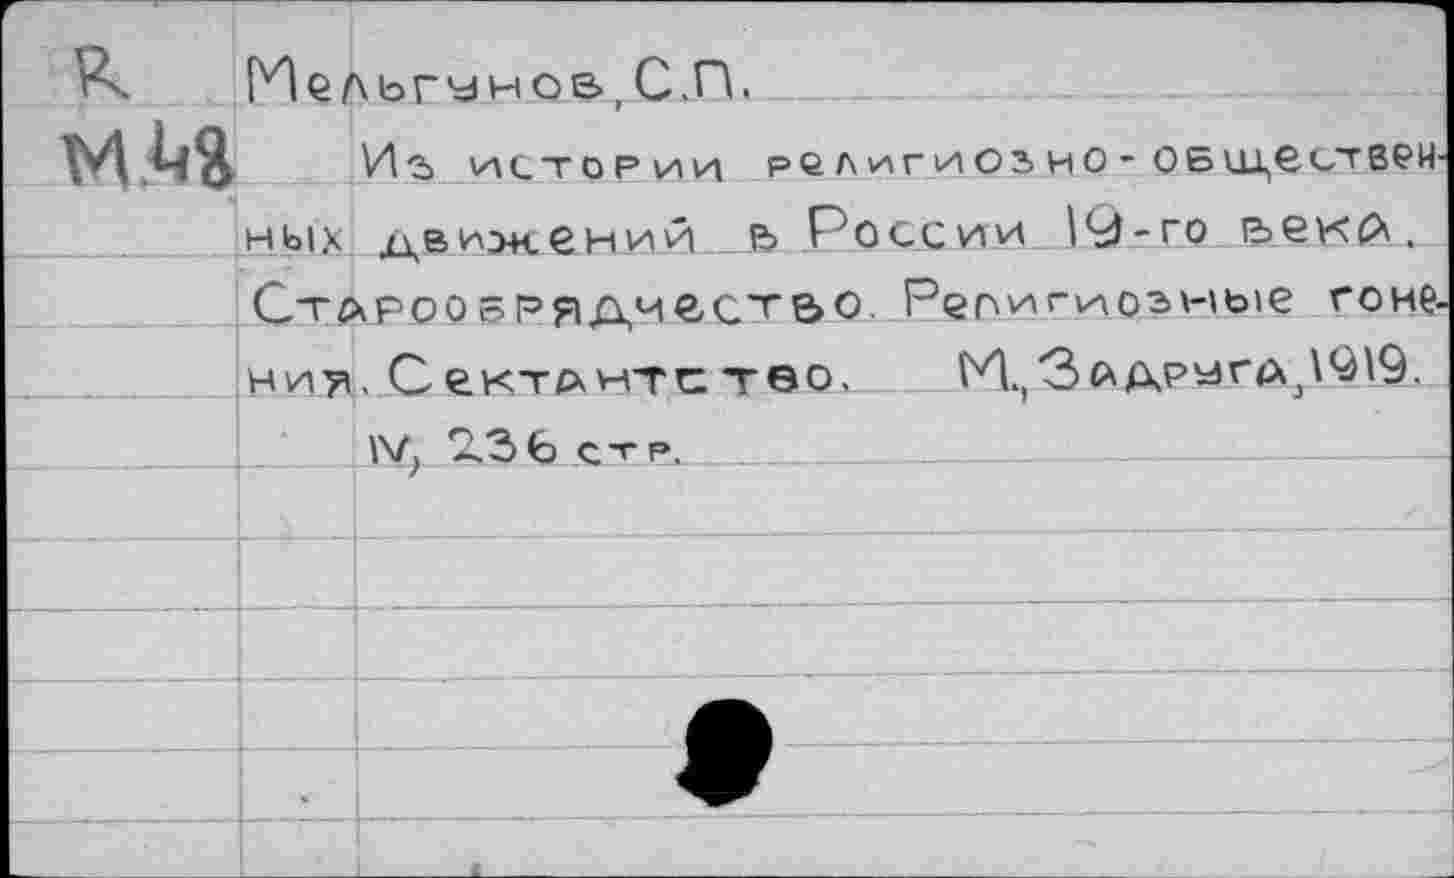 R Мельгунов, С.П.
М.48 Из истории религиозно-обществен-
ных движений в России 19-го века.
Старообрядчество. Религиозные гоне-
ния. Сектантство. М., Задруга, 1919.
IV, 236 стр.